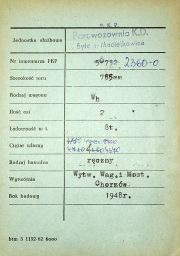 P. K. P.
Jednostka służbowa
Parowozownia K.D.
Byłe - Maciejkowice
Nr inwentarza PKP 2360-0
Szerokość toru 785mm
Rodzaj wagonu Wb
Ilość osi 2
Ładowność w t. 8t.
Ciężar własny
Rodzaj hamulca ręczny
Wytwórnia Wytw. Wag.i Most. Chorzów.
Rok budowy 1948r.